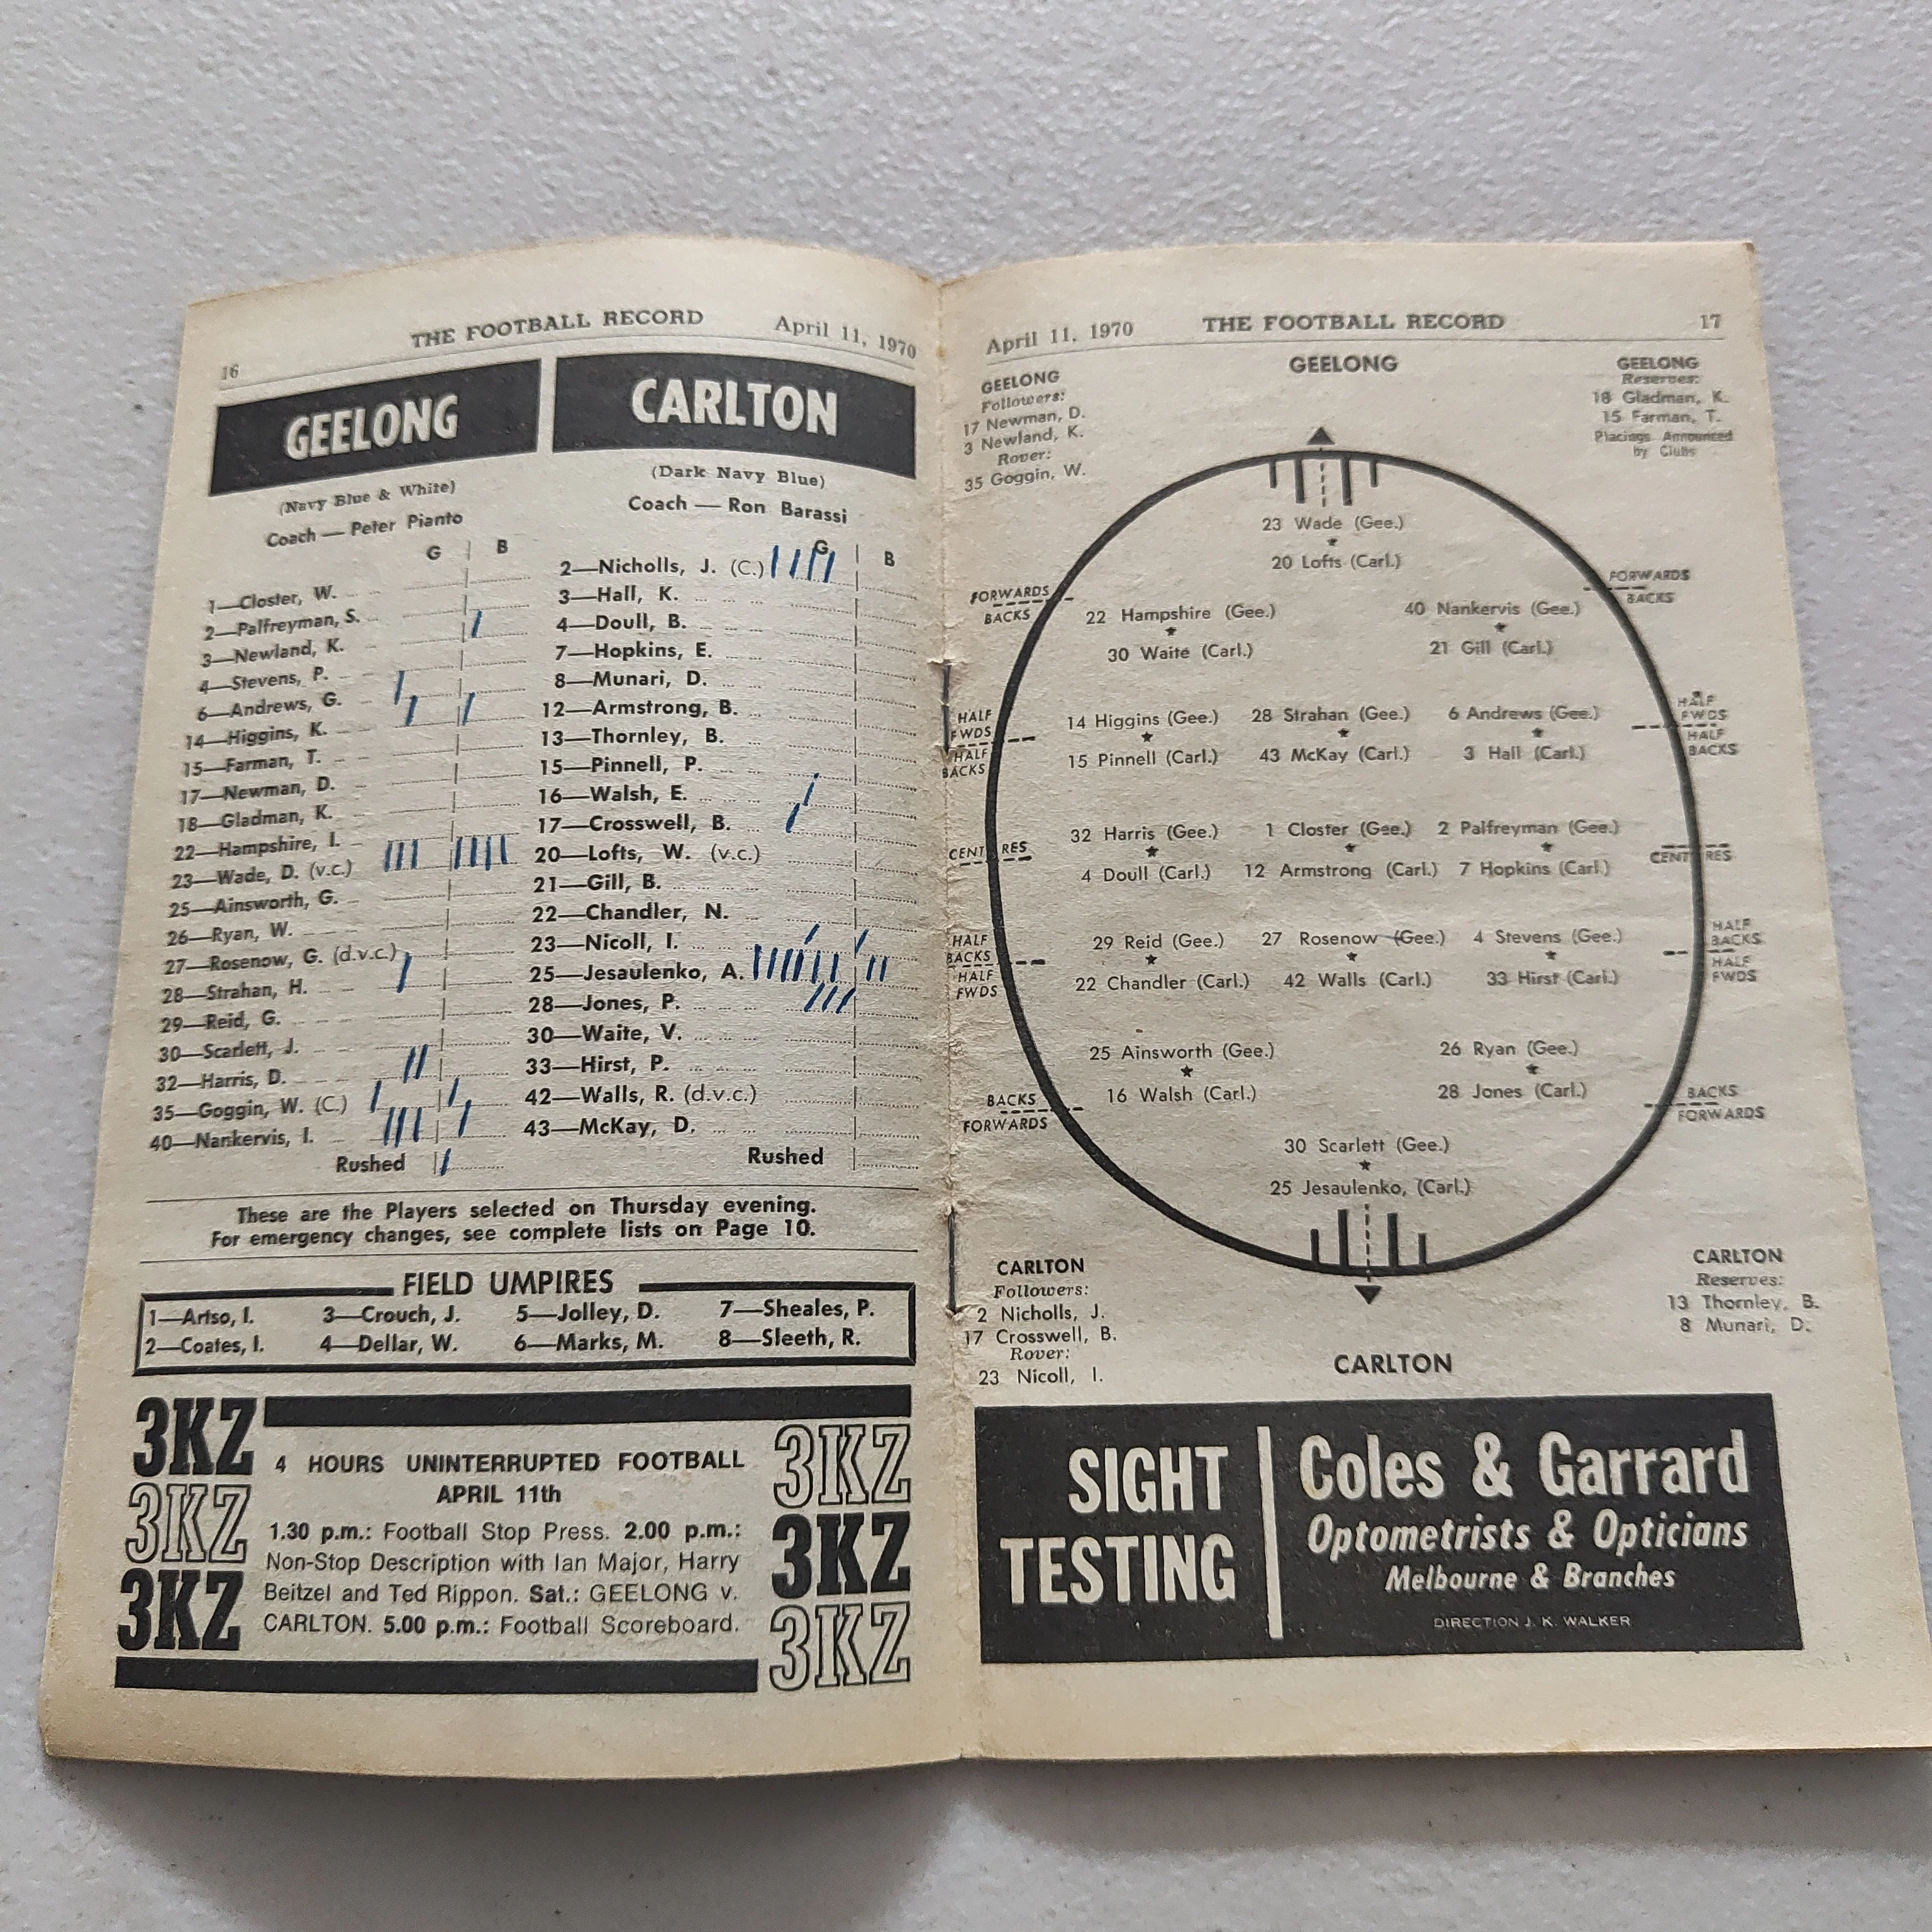 16 THE FOOTBALL RECORD April 11, 1970
GEELONG
(Navy Blue & White)
Coach — Peter Pianto
G B
1—Closter, W.
2—Palfreyman, S.
3—Newland, K.
4—Stevens, P.
6—Andrews, G.
14—Higgins, K.
15—Farman, T.
17—Newman, D.
18—Gladman, K.
22—Hampshire, I.
23—Wade, D. (v.c.)
25—Ainsworth, G.
26—Ryan, W.
27—Rosenow, G. (d.v.c.)
28—Strahan, H.
29—Reid, G.
30—Scarlett, J.
32—Harris, D.
35—Goggin, W. (C.)
40—Nankervis, I.
Rushed
CARLTON
(Dark Navy Blue)
Coach — Ron Barassi
G B
2—Nicholls, J. (C.)
3—Hall, K.
4—Doull, B.
7—Hopkins, E.
8—Munari, D.
12—Armstrong, B.
13—Thornley, B.
15—Pinnell, P.
16—Walsh, E.
17—Crosswell, B.
20—Lofts, W. (v.c.)
21—Gill, B.
22—Chandler, N.
23—Nicoll, I.
25—Jesaulenko, A.
28—Jones, P.
30—Waite, V.
33—Hirst, P.
42—Walls, R. (d.v.c.)
43—McKay, D.
Rushed
These are the Players selected on Thursday evening.
For emergency changes, see complete lists on Page 10.
FIELD UMPIRES
1—Artso, I. 3—Crouch, J. 5—Jolley, D. 7—Sheales, P.
2—Coates, I. 4—Dellar, W. 6—Marks, M. 8—Sleeth, R.
3KZ
3KZ
3KZ
4 HOURS UNINTERRUPTED FOOTBALL
APRIL 11th
1.30 p.m.: Football Stop Press. 2.00 p.m.:
Non-Stop Description with Ian Major, Harry
Beitzel and Ted Rippon. Sat.: GEELONG v.
CARLTON. 5.00 p.m.: Football Scoreboard.
3KZ
3KZ
3KZ
April 11, 1970 THE FOOTBALL RECORD 17
GEELONG
Followers:
17 Newman, D.
3 Newland, K.
Rover:
35 Goggin, W.
GEELONG
GEELONG
Reserves:
18 Gladman, K.
15 Farman, T.
Placings Announced
by Clubs
23 Wade (Gee.)
20 Lofts (Carl.)
FORWARDS FORWARDS
BACKS BACKS
22 Hampshire (Gee.) 40 Nankervis (Gee.)
30 Waite (Carl.) 21 Gill (Carl.)
HALF FWDS HALF FWDS
HALF BACKS HALF BACKS
14 Higgins (Gee.) 28 Strahan (Gee.) 6 Andrews (Gee.)
15 Pinnell (Carl.) 43 McKay (Carl.) 3 Hall (Carl.)
32 Harris (Gee.) 1 Closter (Gee.) 2 Palfreyman (Gee.)
CENTRES CENTRES
4 Doull (Carl.) 12 Armstrong (Carl.) 7 Hopkins (Carl.)
HALF BACKS HALF BACKS
HALF FWDS HALF FWDS
29 Reid (Gee.) 27 Rosenow (Gee.) 4 Stevens (Gee.)
22 Chandler (Carl.) 42 Walls (Carl.) 33 Hirst (Carl.)
25 Ainsworth (Gee.) 26 Ryan (Gee.)
16 Walsh (Carl.) 28 Jones (Carl.)
BACKS BACKS
FORWARDS FORWARDS
30 Scarlett (Gee.)
25 Jesaulenko, (Carl.)
CARLTON
Followers:
2 Nicholls, J.
17 Crosswell, B.
Rover:
23 Nicoll, I.
CARLTON
CARLTON
Reserves:
13 Thornley, B.
8 Munari, D.
SIGHT
TESTING
Coles & Garrard
Optometrists & Opticians
Melbourne & Branches
DIRECTION J. K. WALKER